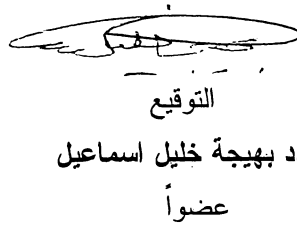 التوقيع
د بهيجة خليل اسماعيل
عضواً